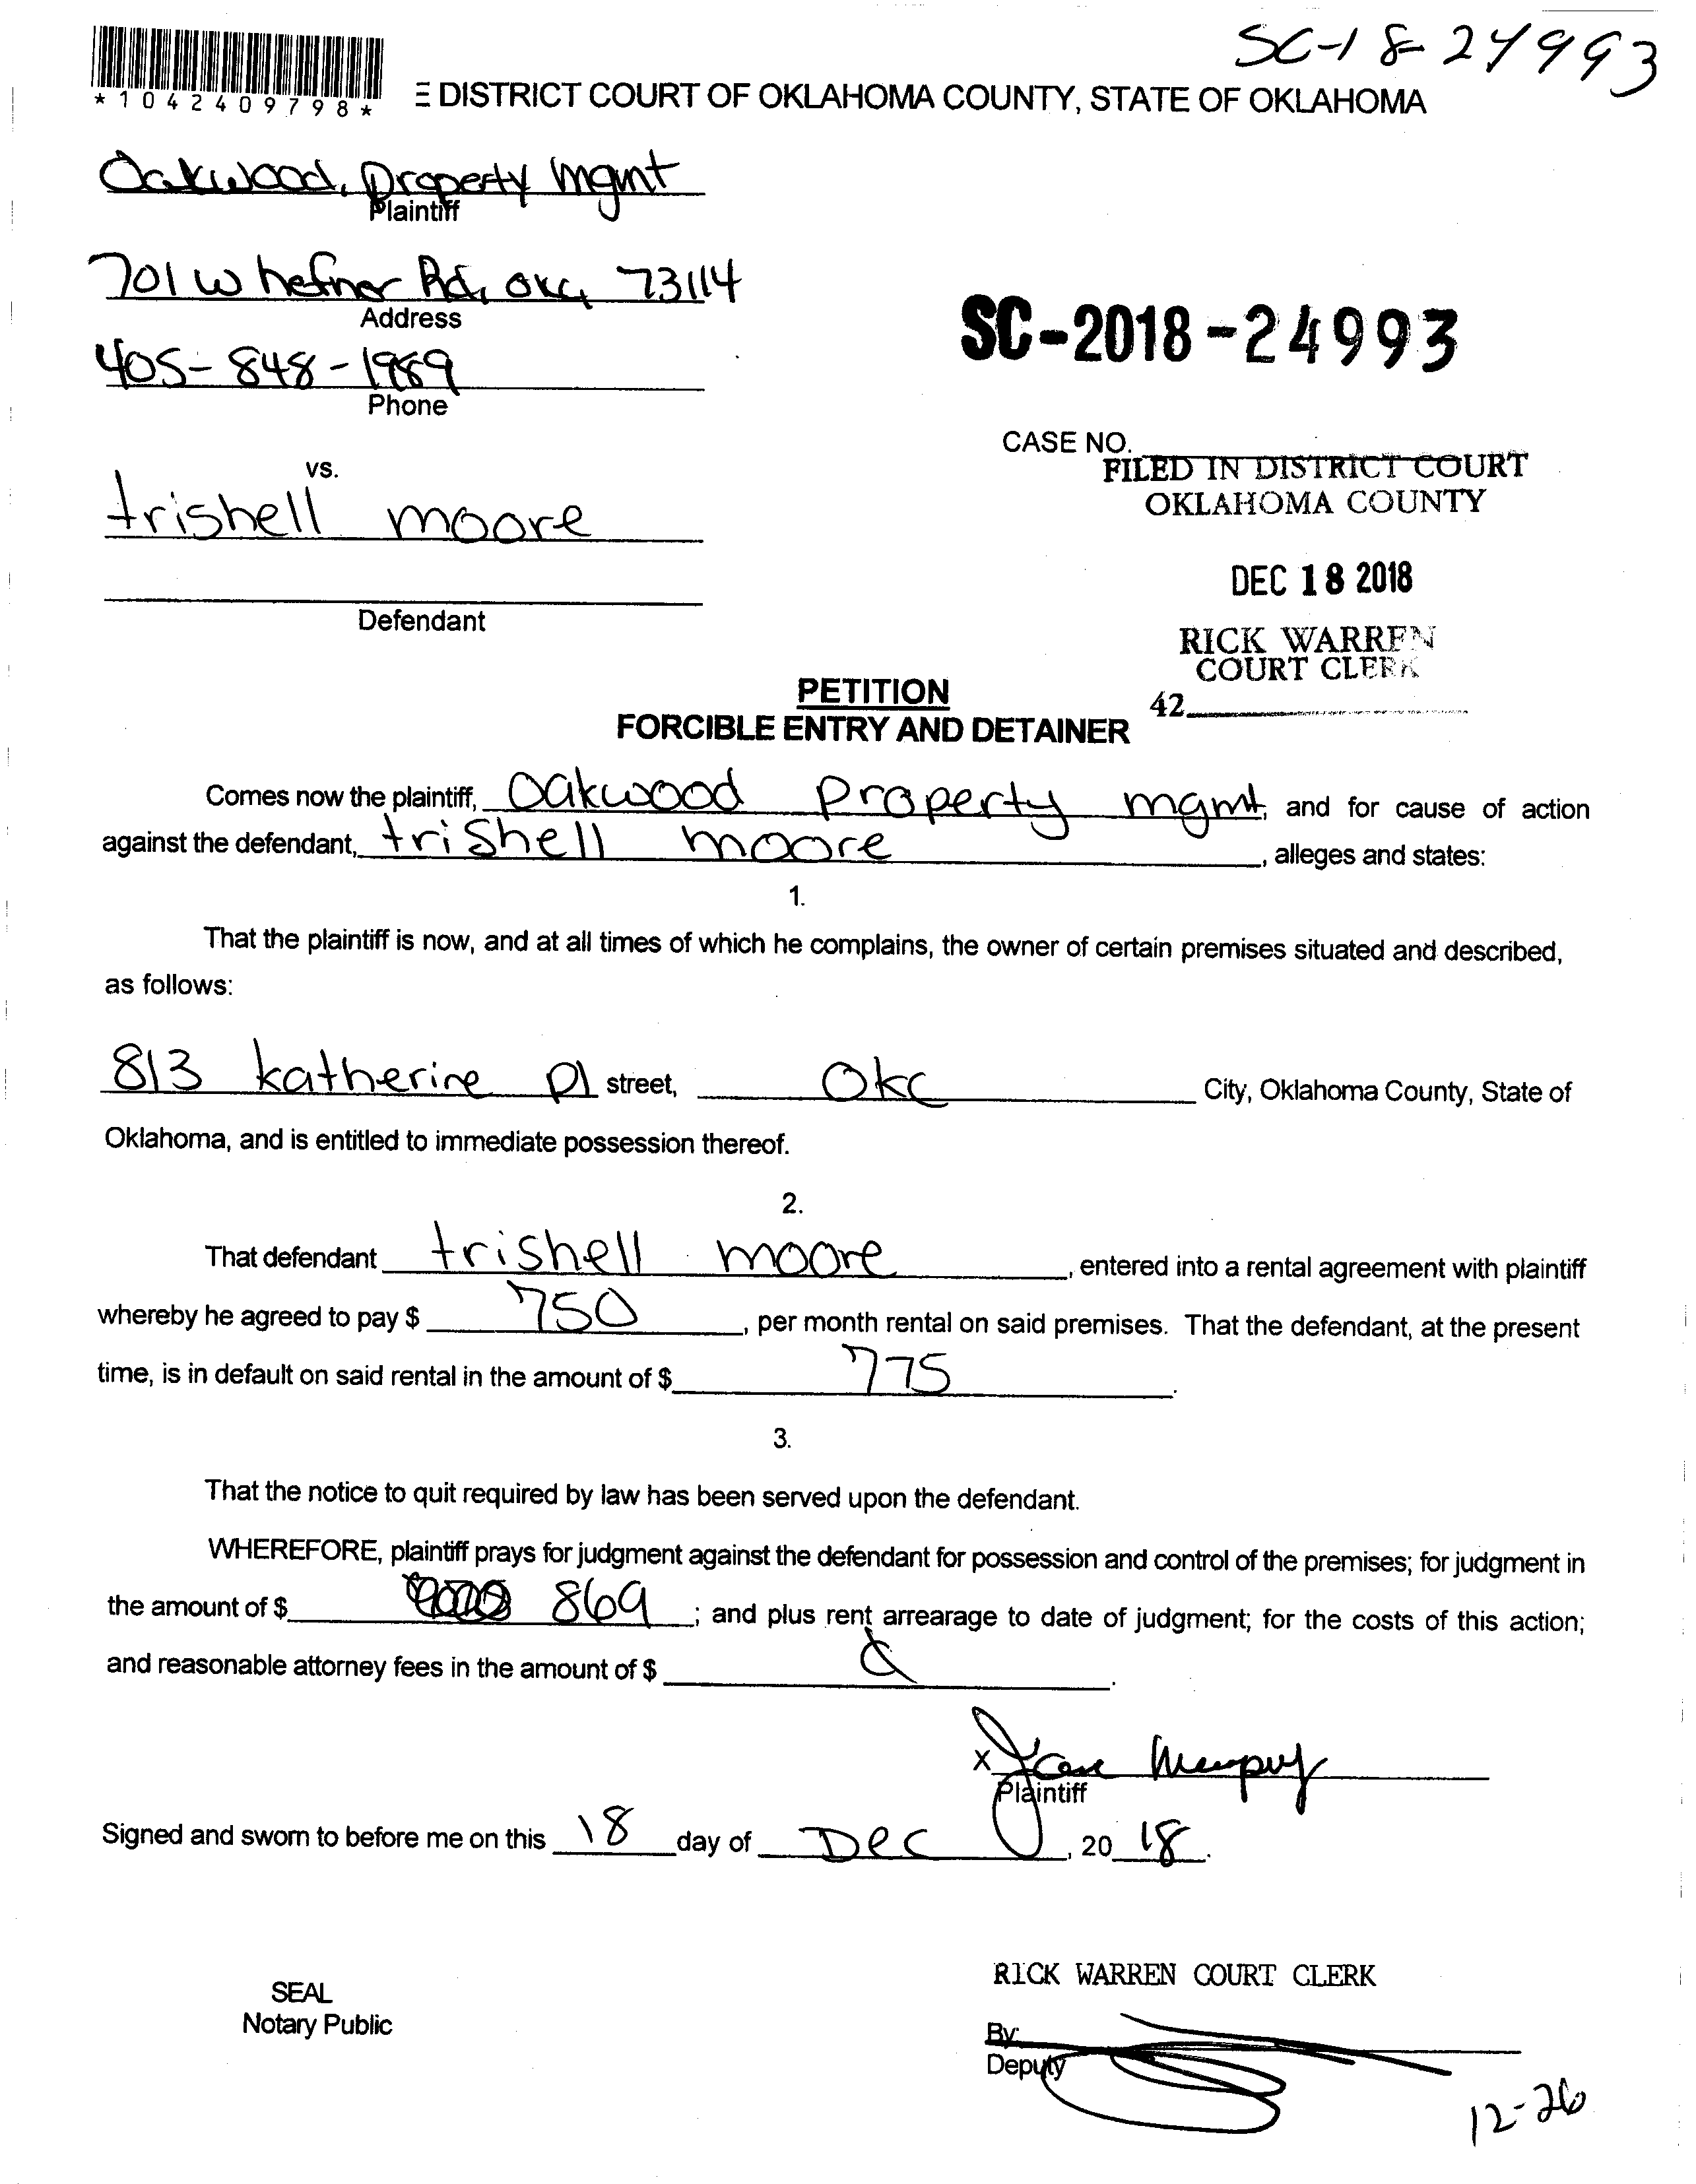 SC-18-24993
*1042409798*
E DISTRICT COURT OF OKLAHOMA COUNTY, STATE OF OKLAHOMA
Oakwood, Property mgmt
Plaintiff
701 W hefner Rd, OKC, 73114
Address
SC-2018-24993
405-848-1989
Phone
CASE NO.
vs.
FILED IN DISTRICT COURT
OKLAHOMA COUNTY
trishell moore
DEC 18 2018
Defendant
RICK WARREN
COURT CLERK
42
PETITION
FORCIBLE ENTRY AND DETAINER
Comes now the plaintiff, Oakwood Property mgmt, and for cause of action
against the defendant, trishell moore, alleges and states:
1.
That the plaintiff is now, and at all times of which he complains, the owner of certain premises situated and described,
as follows:
813 katherine pl street, OKC City, Oklahoma County, State of
Oklahoma, and is entitled to immediate possession thereof.
2.
That defendant trishell moore, entered into a rental agreement with plaintiff
whereby he agreed to pay $ 750, per month rental on said premises. That the defendant, at the present
time, is in default on said rental in the amount of $ 775.
3.
That the notice to quit required by law has been served upon the defendant.
WHEREFORE, plaintiff prays for judgment against the defendant for possession and control of the premises; for judgment in
the amount of $ 869; and plus rent arrearage to date of judgment; for the costs of this action;
and reasonable attorney fees in the amount of $
X
Plaintiff
Signed and sworn to before me on this 18 day of Dec, 2018.
SEAL
Notary Public
RICK WARREN COURT CLERK
By:
Deputy
12-26